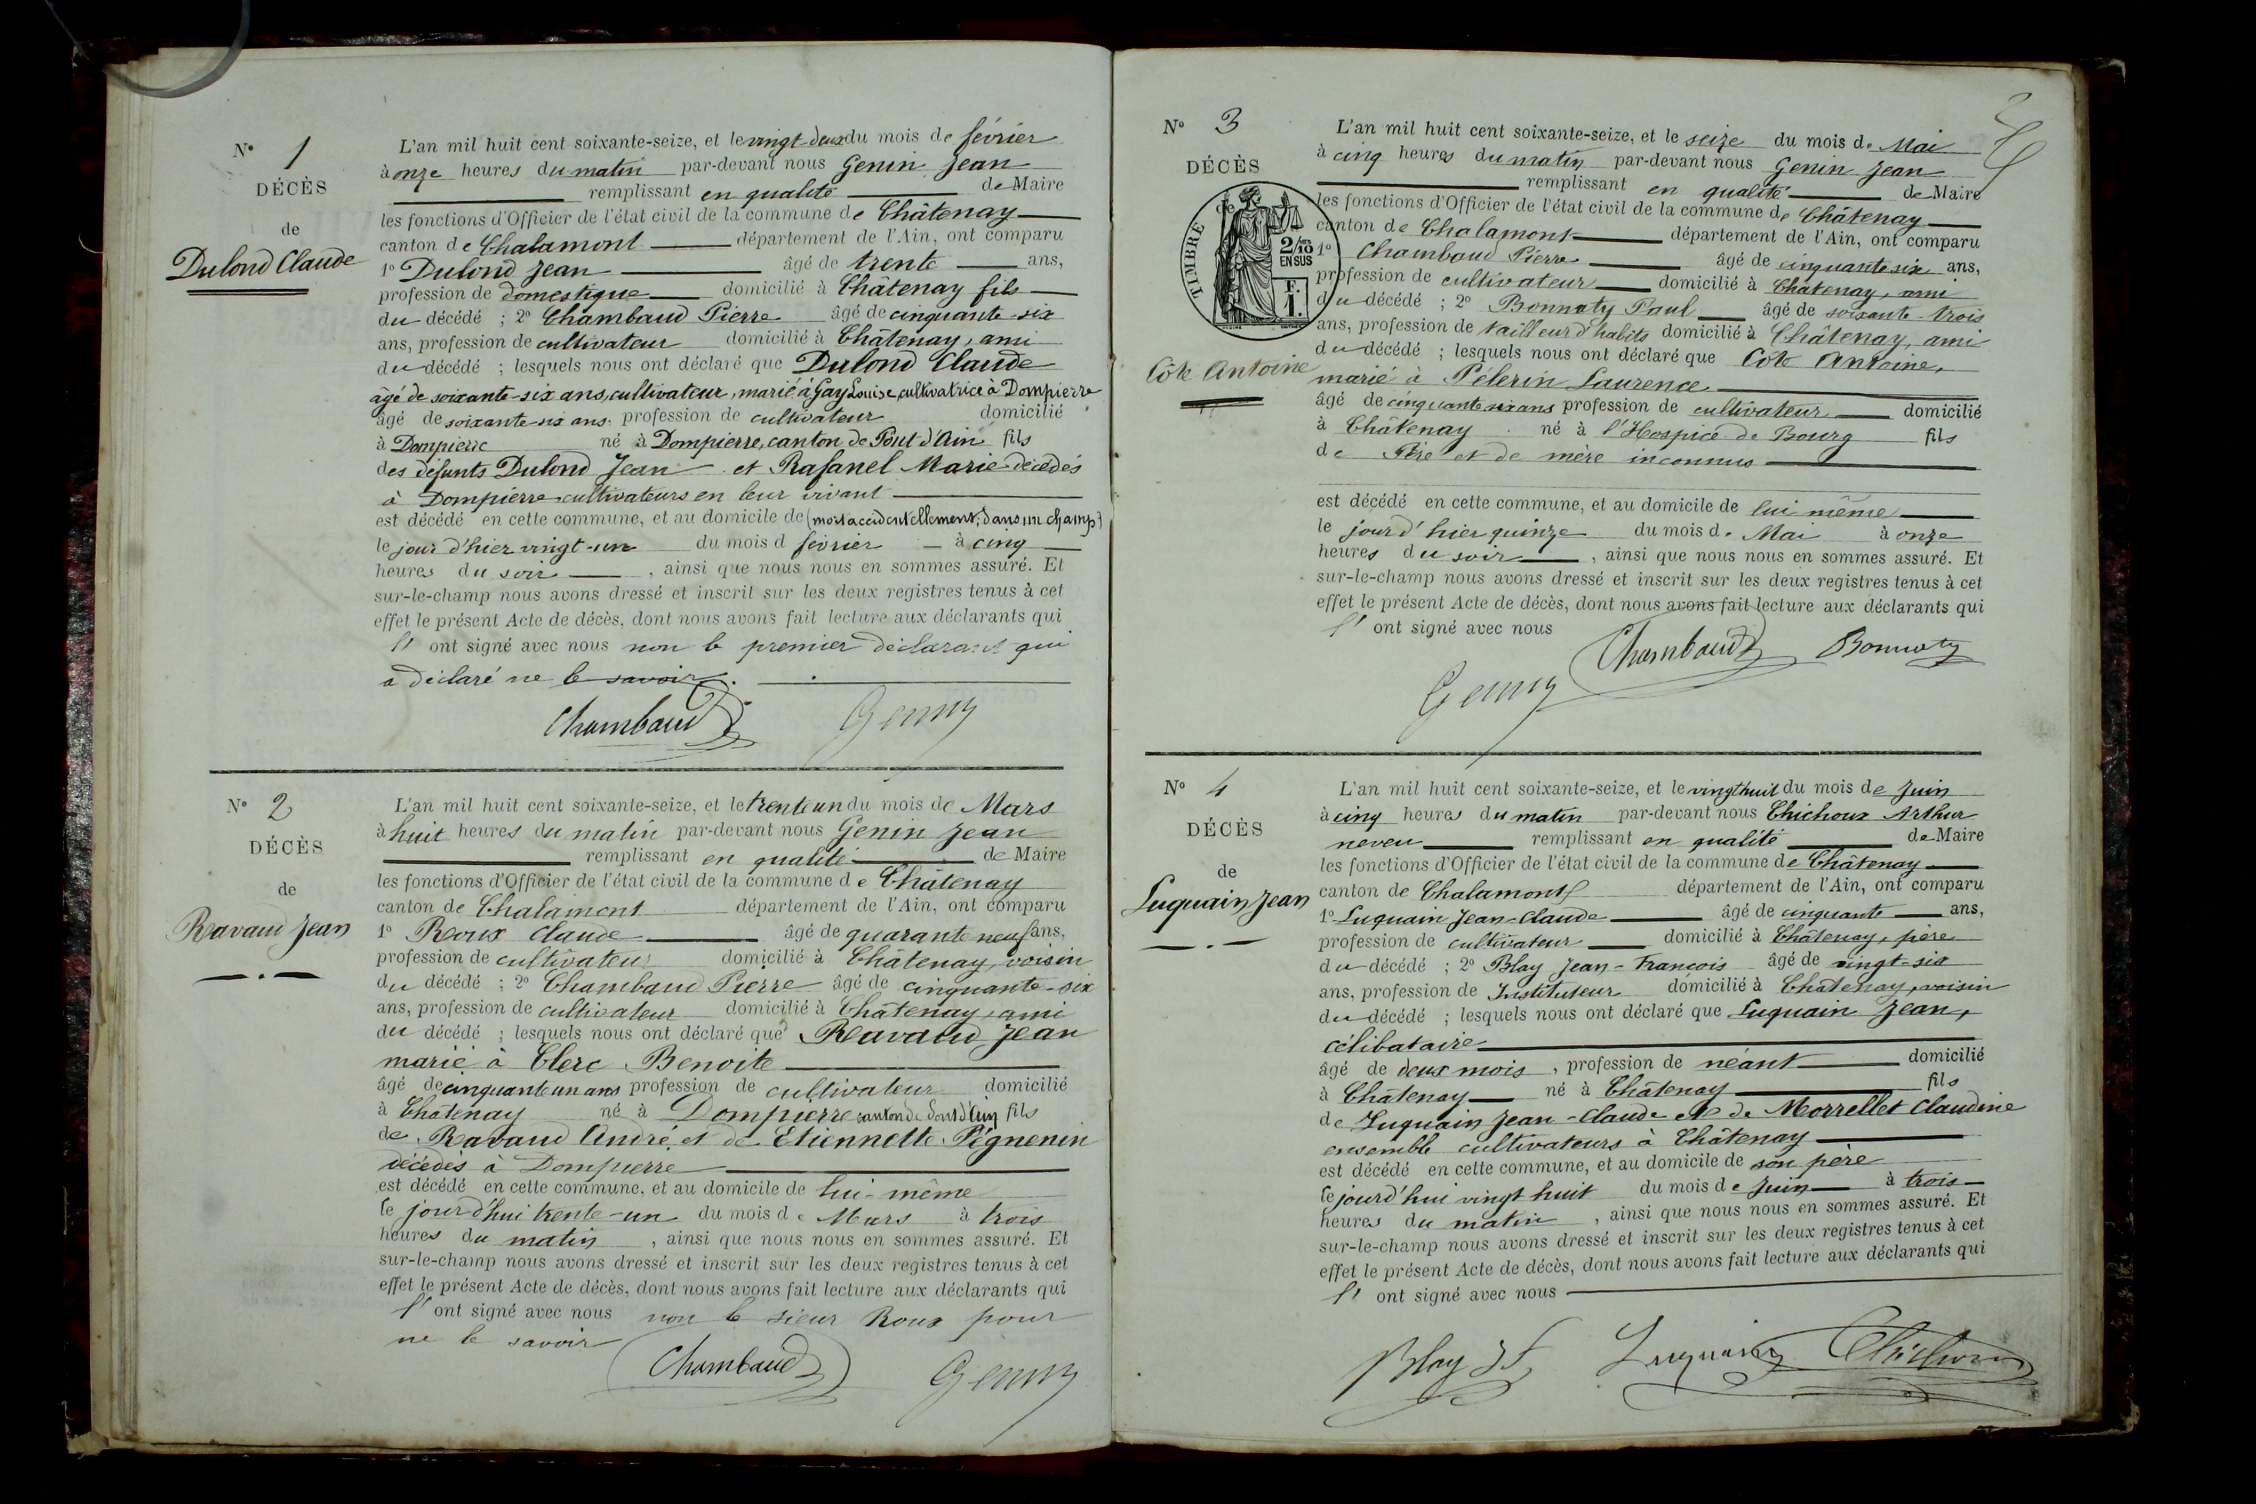 N° 1
DÉCÈS
de
Dulond Claude
L'an mil huit cent soixante-seize, et le vingt-deux du mois de février
à onze heures du matin par-devant nous Genin Jean
remplissant en qualité de Maire
les fonctions d'Officier de l'état civil de la commune de Châtenay
canton de Chalamont département de l'Ain, ont comparu
1° Dulond Jean âgé de trente ans,
profession de domestique domicilié à Châtenay fils
du décédé ; 2° Chambaud Pierre âgé de cinquante-six
ans, profession de cultivateur domicilié à Châtenay, ami
du décédé ; lesquels nous ont déclaré que Dulond Claude
âgé de soixante-six ans, cultivateur, marié à Gay Louise, cultivatrice à Dompierre
âgé de soixante-six ans, profession de cultivateur domicilié
à Dompierre né à Dompierre, canton de Pont-d'Ain fils
des défunts Dulond Jean et Rafanel Marie décédés
à Dompierre cultivateurs en leur vivant
est décédé en cette commune, et au domicile de (mort accidentellement, dans un champ)
le jour d'hier vingt-un du mois d février à cinq
heures du soir, ainsi que nous nous en sommes assuré. Et
sur-le-champ nous avons dressé et inscrit sur les deux registres tenus à cet
effet le présent Acte de décès, dont nous avons fait lecture aux déclarants qui
l' ont signé avec nous non le premier déclarant qui
a déclaré ne le savoir.
Chambaud Genin
N° 2
DÉCÈS
de
Ravaud Jean
L'an mil huit cent soixante-seize, et le trente un du mois de Mars
à huit heures du matin par-devant nous Genin Jean
remplissant en qualité de Maire
les fonctions d'Officier de l'état civil de la commune de Châtenay
canton de Chalamont département de l'Ain, ont comparu
1° Roux Claude âgé de quarante neuf ans,
profession de cultivateur domicilié à Châtenay, voisin
du décédé ; 2° Chambaud Pierre âgé de cinquante-six
ans, profession de cultivateur domicilié à Châtenay, ami
du décédé ; lesquels nous ont déclaré que Ravaud Jean
marié à Clerc Benoite
âgé de cinquante un ans profession de cultivateur domicilié
à Châtenay né à Dompierre canton de Pont d'Ain fils
de Ravaud André et de Etiennette Pégnenin
décédés à Dompierre
est décédé en cette commune, et au domicile de lui-même
le jourd'hui trente-un du mois de Mars à trois
heures du matin, ainsi que nous nous en sommes assuré. Et
sur-le-champ nous avons dressé et inscrit sur les deux registres tenus à cet
effet le présent Acte de décès, dont nous avons fait lecture aux déclarants qui
l' ont signé avec nous non le sieur Roux pour
ne le savoir
Chambaud Genin
N° 3
DÉCÈS
de
TIMBRE
2/10 EN SUS
F. 1.
Côte Antoine
L'an mil huit cent soixante-seize, et le seize du mois de Mai
à cinq heures du matin par-devant nous Genin Jean
remplissant en qualité de Maire
les fonctions d'Officier de l'état civil de la commune de Châtenay
canton de Chalamont département de l'Ain, ont comparu
1° Chambaud Pierre âgé de cinquante six ans,
profession de cultivateur domicilié à Châtenay, ami
du décédé ; 2° Bonnaty Paul âgé de soixante-trois
ans, profession de tailleur d'habits domicilié à Châtenay, ami
du décédé ; lesquels nous ont déclaré que Côte Antoine,
marié à Pélerin Laurence
âgé de cinquante six ans profession de cultivateur domicilié
à Châtenay né à l'Hospice de Bourg fils
de Père et de mère inconnus
est décédé en cette commune, et au domicile de lui même
le jour d'hier quinze du mois de Mai à onze
heures du soir, ainsi que nous nous en sommes assuré. Et
sur-le-champ nous avons dressé et inscrit sur les deux registres tenus à cet
effet le présent Acte de décès, dont nous avons fait lecture aux déclarants qui
l' ont signé avec nous
Chambaud Bonnaty
Genin
N° 4
DÉCÈS
de
Luquain Jean
L'an mil huit cent soixante-seize, et le vingt huit du mois de Juin
à cinq heures du matin par-devant nous Chichoux Arthur
neveu remplissant en qualité de Maire
les fonctions d'Officier de l'état civil de la commune de Châtenay
canton de Chalamont département de l'Ain, ont comparu
1° Luquain Jean-Claude âgé de cinquante ans,
profession de cultivateur domicilié à Châtenay, père
du décédé ; 2° Blay Jean-François âgé de vingt-six
ans, profession de Instituteur domicilié à Châtenay, voisin
du décédé ; lesquels nous ont déclaré que Luquain Jean,
célibataire
âgé de deux mois, profession de néant domicilié
à Châtenay né à Châtenay fils
de Luquain Jean-Claude et de Morrellet Claudine
ensemble cultivateurs à Châtenay
est décédé en cette commune, et au domicile de son père
le jourd'hui vingt huit du mois de Juin à trois
heures du matin, ainsi que nous nous en sommes assuré. Et
sur-le-champ nous avons dressé et inscrit sur les deux registres tenus à cet
effet le présent Acte de décès, dont nous avons fait lecture aux déclarants qui
l' ont signé avec nous
Blay J F Luquain Chichoux